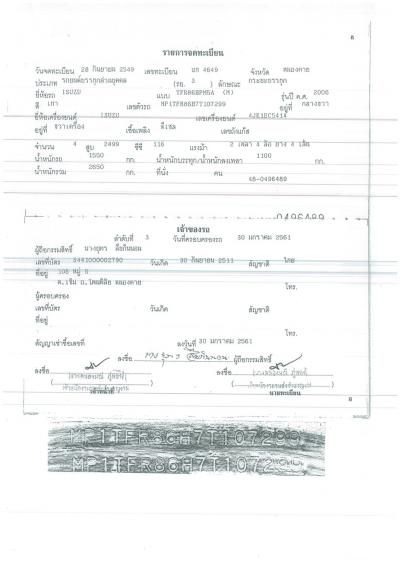 8
รายการจดทะเบียน
วันจดทะเบียน 28 กันยายน 2549 เลขทะเบียน 4649 จังหวัด หนองคาย
ประเภท รถยนต์บรรทุกส่วนบุคคล (รย. 3 ) ลักษณะ กระบะบรรทุก
ยี่ห้อรถ ISUZU แบบ TFR86HPM5A (M) รุ่นปี ค.ศ. 2006
สี เทา เลขตัวรถ MP1TFR86H7T107299 อยู่ที่ กลางขวา
ยี่ห้อเครื่องยนต์ ISUZU เลขเครื่องยนต์ 4JK1EC5414
อยู่ที่ ขวาเครื่อง เชื้อเพลิง ดีเซล เลขถังแก๊ส
จำนวน 4 สูบ 2499 ซีซี 116 แรงม้า 2 เพลา 4 ล้อ ยาง 4 เส้น
น้ำหนักรถ 1550 กก. น้ำหนักบรรทุก/น้ำหนักลงเพลา 1100 กก.
น้ำหนักรวม 2650 กก. ที่นั่ง คน
48-0496489
0496489
เจ้าของรถ
ลำดับที่ 3 วันที่ครอบครองรถ 30 มกราคม 2561
ผู้ถือกรรมสิทธิ์
เลขที่บัตร 3441000002790 วันเกิด 30 กันยายน 2511 สัญชาติ ไทย
ที่อยู่ 108 หมู่ 5
หนองคาย โทร.
ผู้ครอบครอง
เลขที่บัตร วันเกิด สัญชาติ
ที่อยู่ โทร.
สัญญาเช่าซื้อเลขที่ ลงวันที่ 30 มกราคม 2561
ลงชื่อ ผู้ถือกรรมสิทธิ์
ลงชื่อ ลงชื่อ
เจ้าหน้าที่ นายทะเบียน
8
MP1TFR86H7T107299
MP1TFR86H7T107299